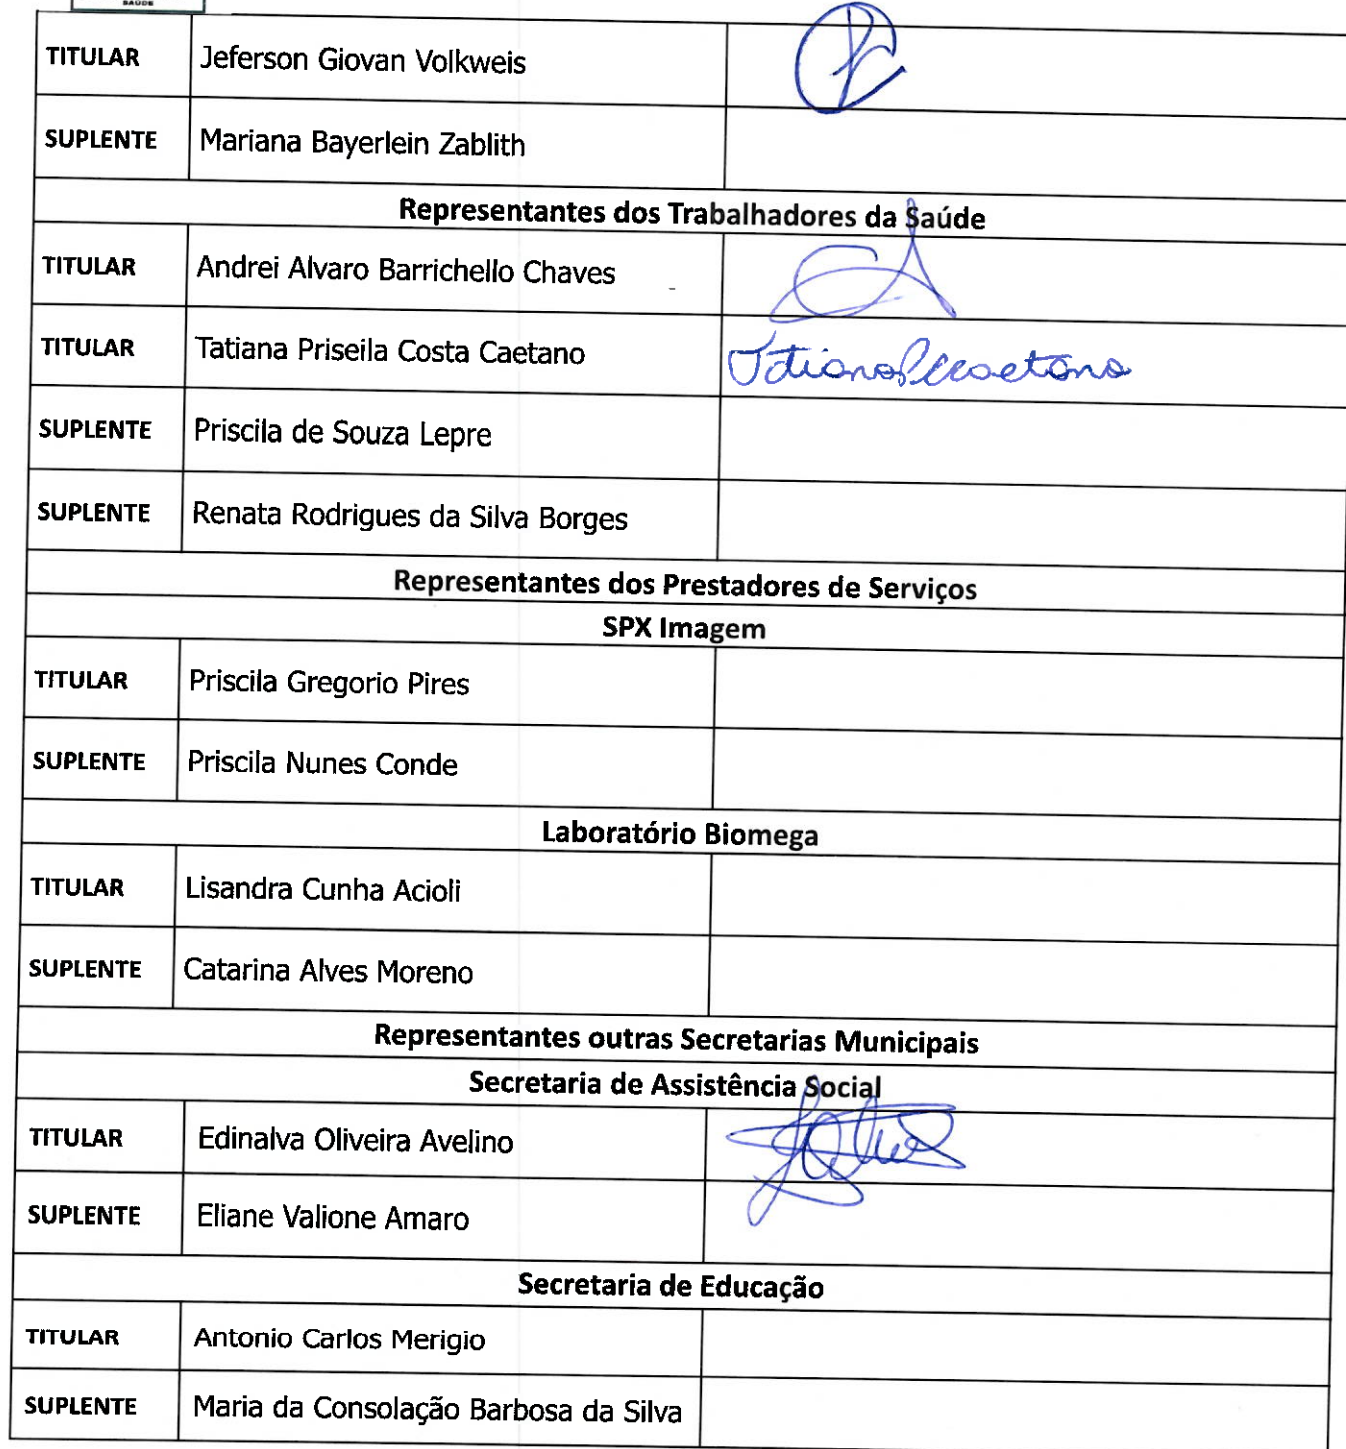 SAÚDE
TITULAR Jeferson Giovan Volkweis
SUPLENTE Mariana Bayerlein Zablith
Representantes dos Trabalhadores da Saúde
TITULAR Andrei Alvaro Barrichello Chaves
TITULAR Tatiana Priseila Costa Caetano
SUPLENTE Priscila de Souza Lepre
SUPLENTE Renata Rodrigues da Silva Borges
Representantes dos Prestadores de Serviços
SPX Imagem
TITULAR Priscila Gregorio Pires
SUPLENTE Priscila Nunes Conde
Laboratório Biomega
TITULAR Lisandra Cunha Acioli
SUPLENTE Catarina Alves Moreno
Representantes outras Secretarias Municipais
Secretaria de Assistência Social
TITULAR Edinalva Oliveira Avelino
SUPLENTE Eliane Valione Amaro
Secretaria de Educação
TITULAR Antonio Carlos Merigio
SUPLENTE Maria da Consolação Barbosa da Silva